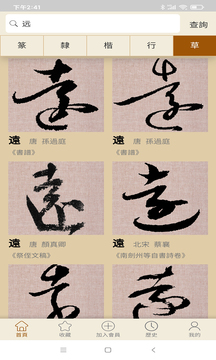 下午2:41
远
查詢
篆 隸 楷 行 草
遠 遠
遠 唐 孫過庭 遠 唐 孫過庭
《書譜》 《書譜》
遠 遠
遠 唐 顏真卿 遠 北宋 蔡襄
《祭侄文稿》 《南劍州等自書詩卷》
遠 遠
首頁 收藏 加入會員 歷史 我的